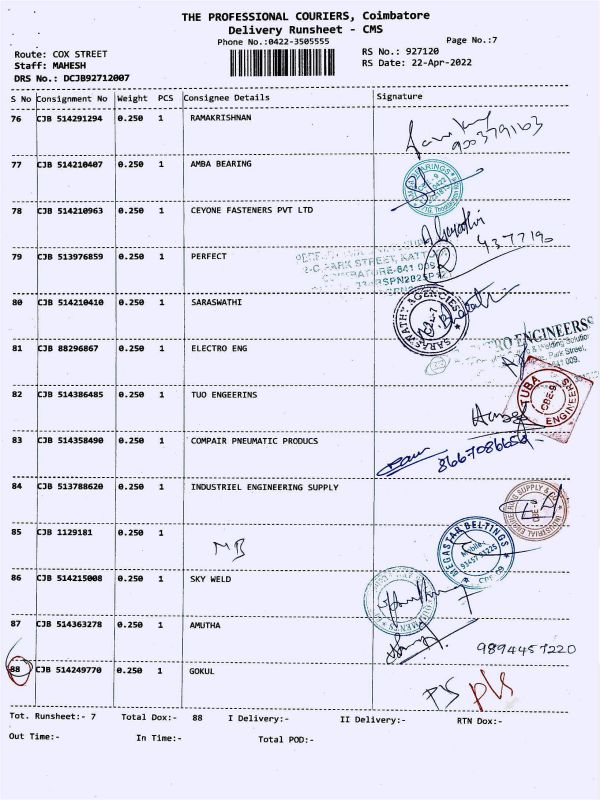 THE PROFESSIONAL COURIERS, Coimbatore
Delivery Runsheet - CMS
Phone No.:0422-3505555 Page No.:7
Route: COX STREET RS No.: 927120
Staff: MAHESH RS Date: 22-Apr-2022
DRS No.: DCJB92712007
S No Consignment No Weight PCS Consignee Details Signature
76 CJB 514291294 0.250 1 RAMAKRISHNAN
9003791163
77 CJB 514210407 0.250 1 AMBA BEARING
78 CJB 514210963 0.250 1 CEYONE FASTENERS PVT LTD
79 CJB 513976859 0.250 1 PERFECT
80 CJB 514210410 0.250 1 SARASWATHI
SARASWATHY AGENCIES
81 CJB 88296867 0.250 1 ELECTRO ENG
TRO ENGINEERS
82 CJB 514386485 0.250 1 TUO ENGEERINS
TUBA ENGINEERS CBE-9
83 CJB 514358490 0.250 1 COMPAIR PNEUMATIC PRODUCS
8667086656
84 CJB 513788620 0.250 1 INDUSTRIEL ENGINEERING SUPPLY
85 CJB 1129181 0.250 1 MB
MEGASTAR BELTINGS
86 CJB 514215008 0.250 1 SKY WELD
87 CJB 514363278 0.250 1 AMUTHA
9894457220
88 CJB 514249770 0.250 1 GOKUL
Tot. Runsheet:- 7 Total Dox:- 88 I Delivery:- II Delivery:- RTN Dox:-
Out Time:- In Time:- Total POD:-